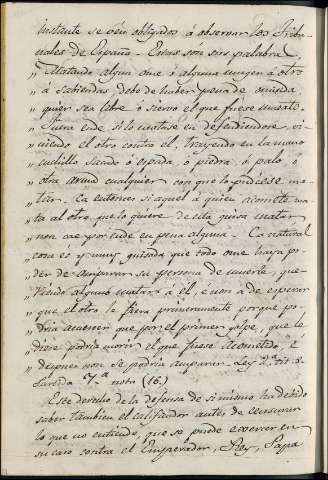 instante se ven obligados á observar los Tribu-
nales de España. Estas son sus palabras
„ Matando algun ome ó alguna muger á otro
„ á sabiendas debe de haber pena de omicida
„ quier sea libre ó siervo el que fuese muerto.
„ Fuera ende si lo matase en defendiendose, vi-
„ niendo el otro contra el, trayendo en la mano
„ cuchillo sacado ó espada, ó piedra, ó palo, ó
„ otra arma cualquier con que lo pudiese ma-
„ tar. Ca entonces si aquel á quien acomete ma-
„ ta al otro que lo quiere de esta guisa matar
„ non cae por ende en pena alguna. Ca natural
„ cosa es y muy guisada que todo ome haya po-
„ der de amparar su persona de muerte, que-
„ riendo alguno matar á él, é non a de esperar
„ que el otro le fiera primeramente porque po-
„ dria acaecer que por el primer golpe, que le
„ diese podria morir el que fuese acometido é
„ despues non se podria amparar. Ley 2ª tit. 8
„ Partida 7.ª nota (16.)
Este derecho de la defensa de si mismo ha debido
saber tambien el calificador antes de censurar
lo que no entiende, que se puede exercer en
su caso contra el Emperador, Rey, Papa